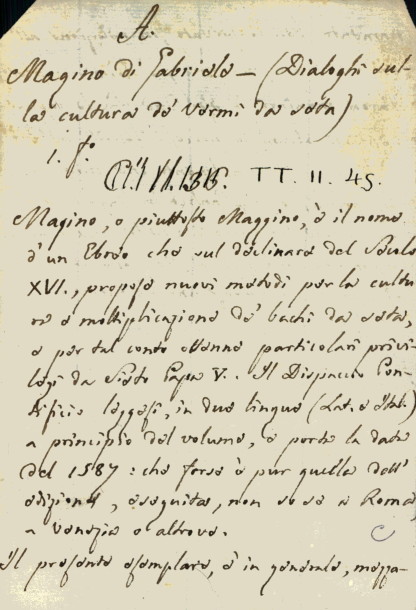 A.
Magino di Gabriele — (Dialoghi sul-
la cultura de' vermi da seta)
1. fo.
TT. II. 45.
Magino, o piuttosto Maggino, è il nome
d'un Ebreo che sul declinare del Secolo
XVI., propose nuovi metodi per la cultu
ra e moltiplicazione de' bachi da seta,
e per tal conto ottenne particolari privi-
legj da Sisto Papa V. Il Dispaccio Pon-
tificio leggesi, in due lingue (Lat. e Ital.)
a principio del volume, e porta la data
del 1587: che forse è pur quella dell'
edizione, eseguita, non so se a Roma,
a Venezia o altrove.
Il presente esemplare, è in generale, mezza-